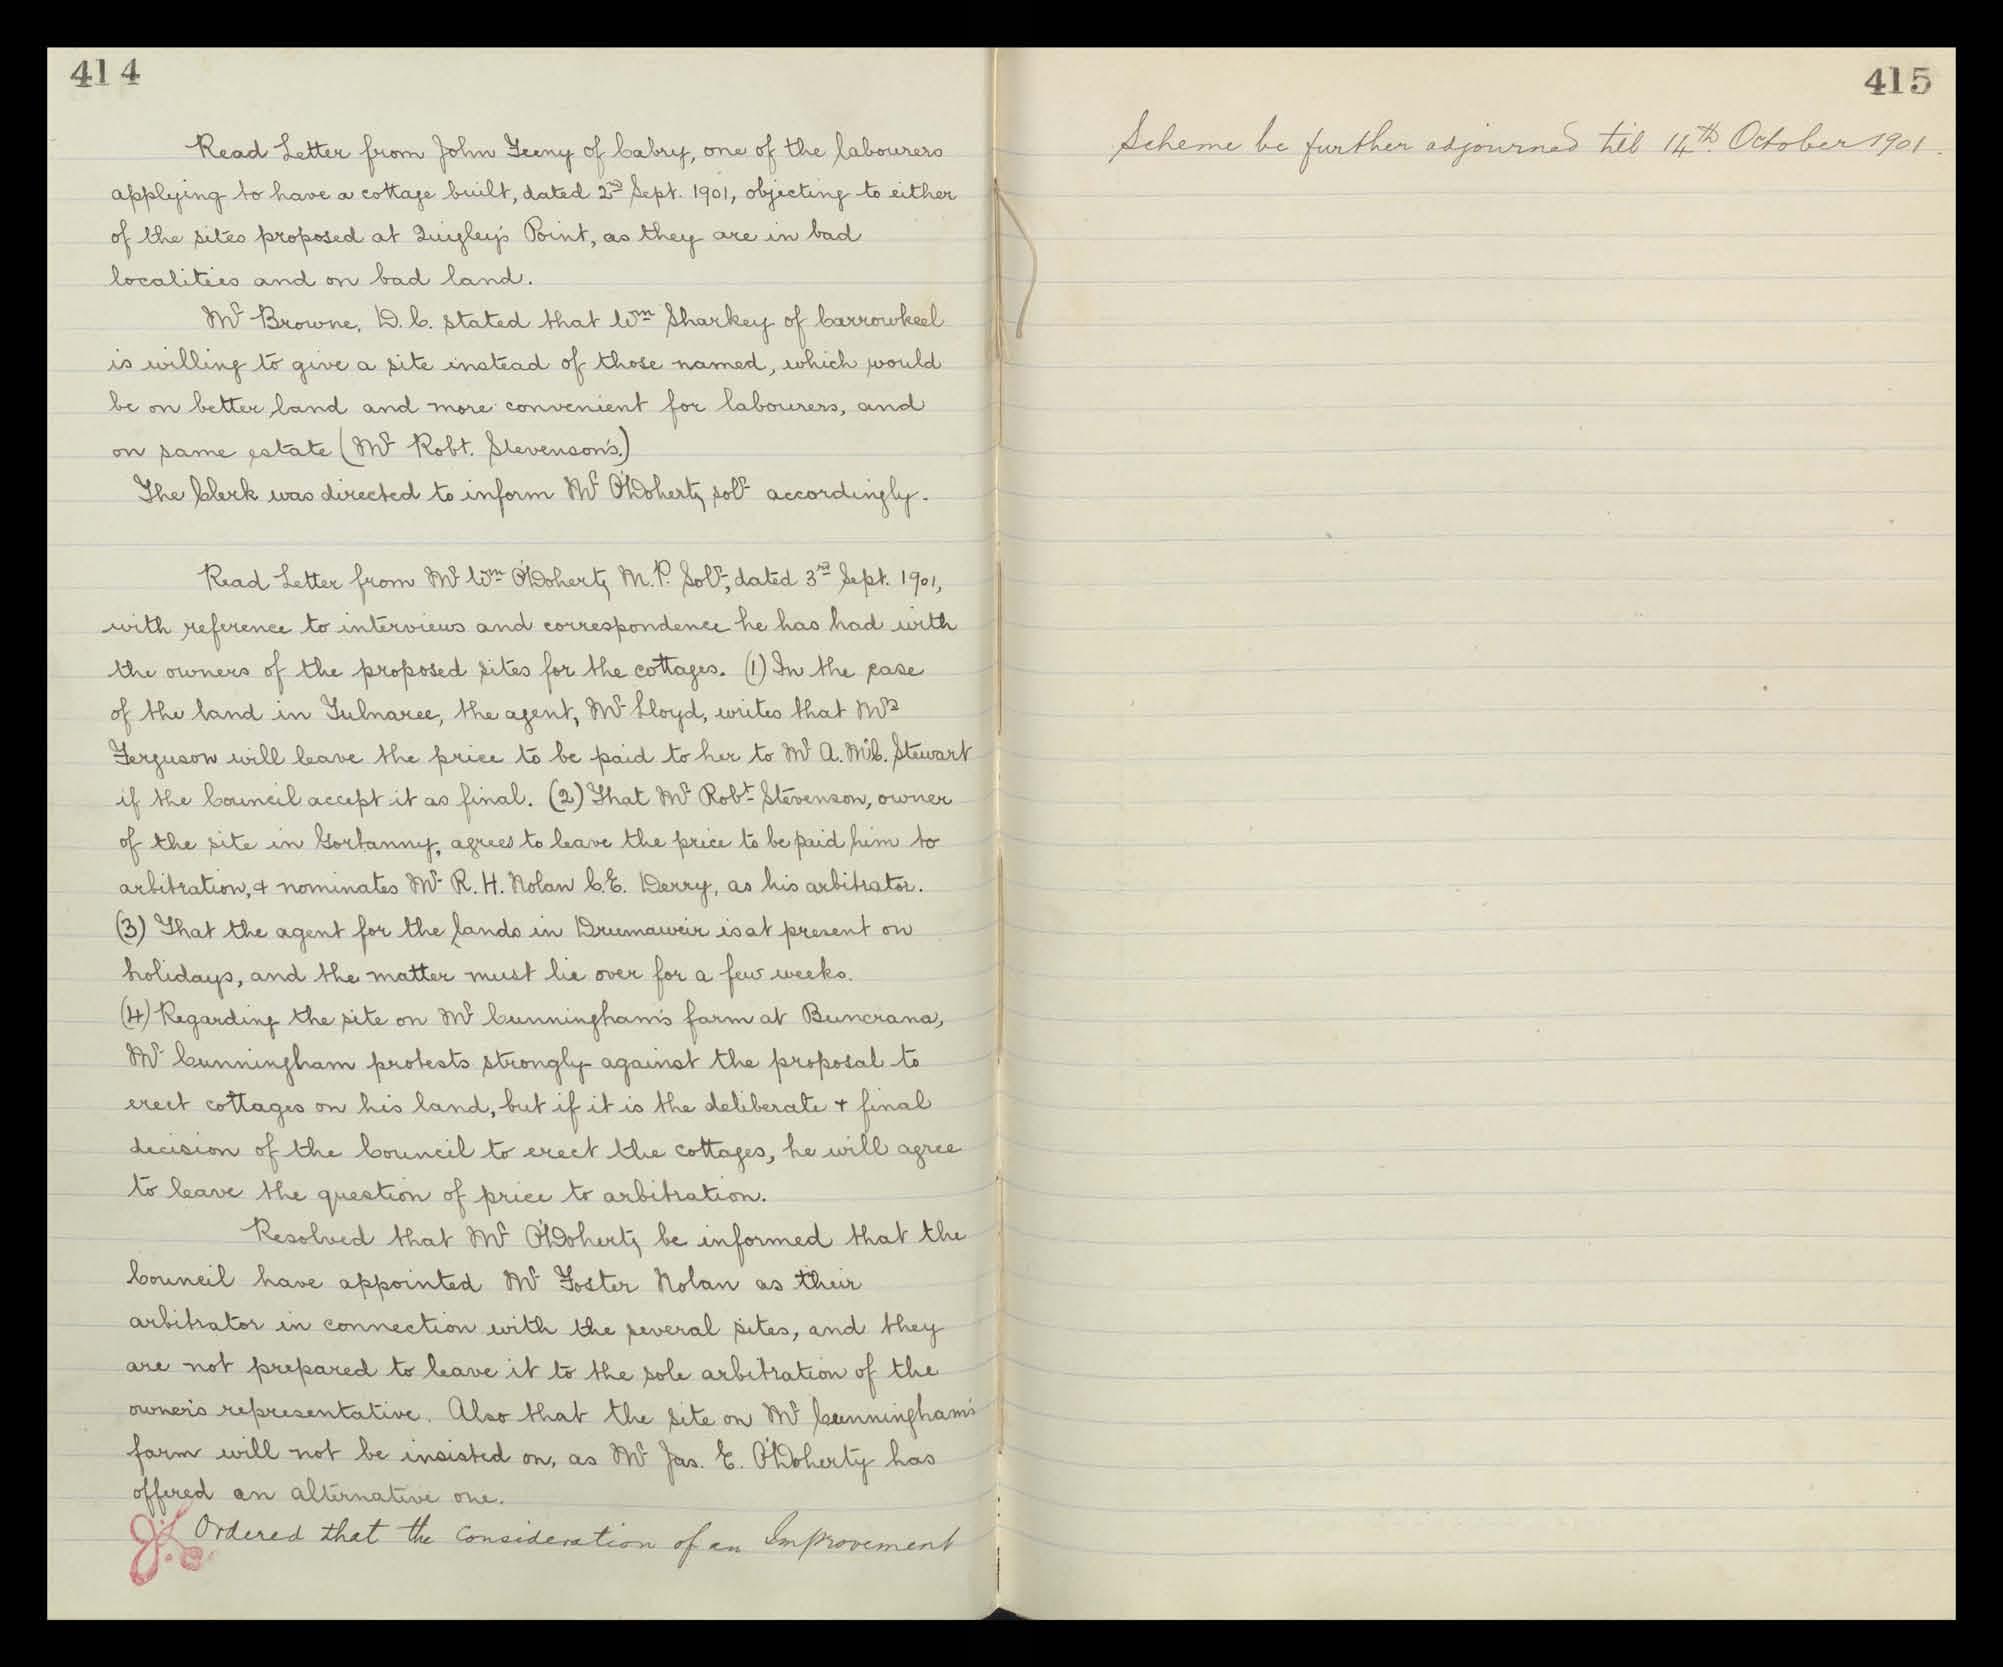 414
Read Letter from John Feeny of Cabry, one of the labourers
applying to have a cottage built, dated 2nd Sept. 1901, objecting to either
of the sites proposed at Quigley's Point, as they are in bad
localities and on bad land.
Mr Browne, D.C. stated that Wm Sharkey of Carrowkeel
is willing to give a site instead of those named, which would
be on better land and more convenient for labourers, and
on same estate (Mr Robt. Stevenson's.)
The Clerk was directed to inform Mr O'Doherty solr accordingly.
Read Letter from Mr Wm O'Doherty M.P. Solr, dated 3rd Sept. 1901,
with reference to interviews and correspondence he has had with
the owners of the proposed sites for the cottages. (1) In the case
of the land in Tulnaree, the agent, Mr Lloyd, writes that Mrs
Ferguson will leave the price to be paid to her to Mr A. McC. Stewart
if the Council accept it as final. (2) That Mr Robt Stevenson, owner
of the site in Gortanny, agrees to leave the price to be paid him to
arbitration, & nominates Mr R. H. Nolan C.E. Derry, as his arbitrator.
(3) That the agent for the lands in Drumaweir is at present on
holidays, and the matter must lie over for a few weeks.
(4) Regarding the site on Mr Cunningham's farm at Buncrana,
Mr Cunningham protests strongly against the proposal to
erect cottages on his land, but if it is the deliberate & final
decision of the Council to erect the cottages, he will agree
to leave the question of price to arbitration.
Resolved that Mr O'Doherty be informed that the
Council have appointed Mr Foster Nolan as their
arbitrator in connection with the several sites, and they
are not prepared to leave it to the sole arbitration of the
owner's representative. Also that the site on Mr Cunningham's
farm will not be insisted on, as Mr Jas. E. O'Doherty has
offered an alternative one.
Ordered that the consideration of an Improvement
415
Scheme be further adjourned till 14th October 1901.